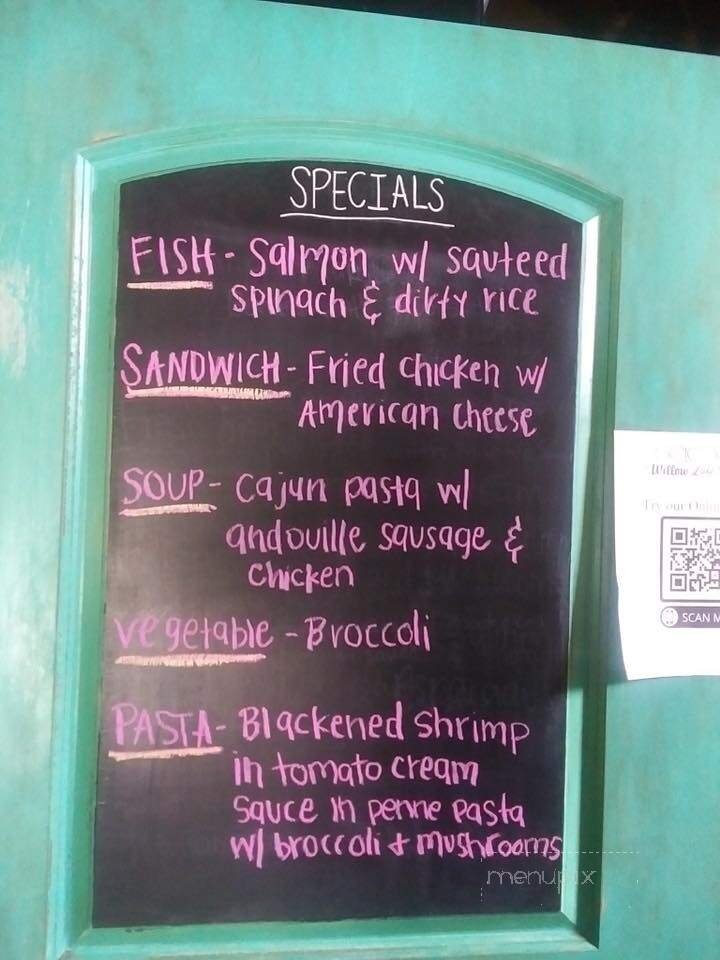 SPECIALS
FISH - Salmon w/ sauteed
spinach & dirty rice
SANDWICH - Fried chicken w/
American cheese
SOUP - Cajun pasta w/
andouille sausage &
chicken
vegetable - Broccoli
PASTA - Blackened shrimp
in tomato cream
sauce in penne pasta
w/ broccoli + mushrooms
Willow
Try our
SCAN
menupix